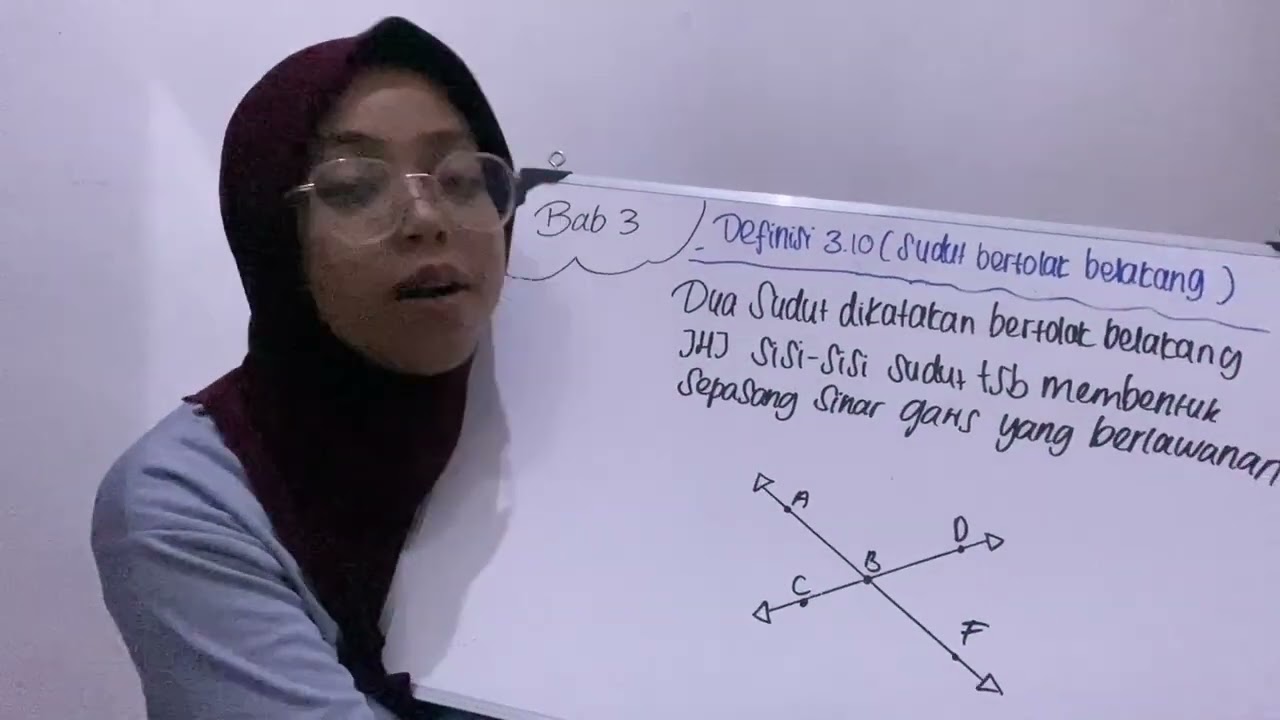 Bab 3
Definisi 3.10 (Sudut bertolak belakang)
Dua Sudut dikatakan bertolak belakang
JHJ Sisi-Sisi sudut tsb membentuk
Sepasang Sinar garis yang berlawanan
A
D
B
C
F